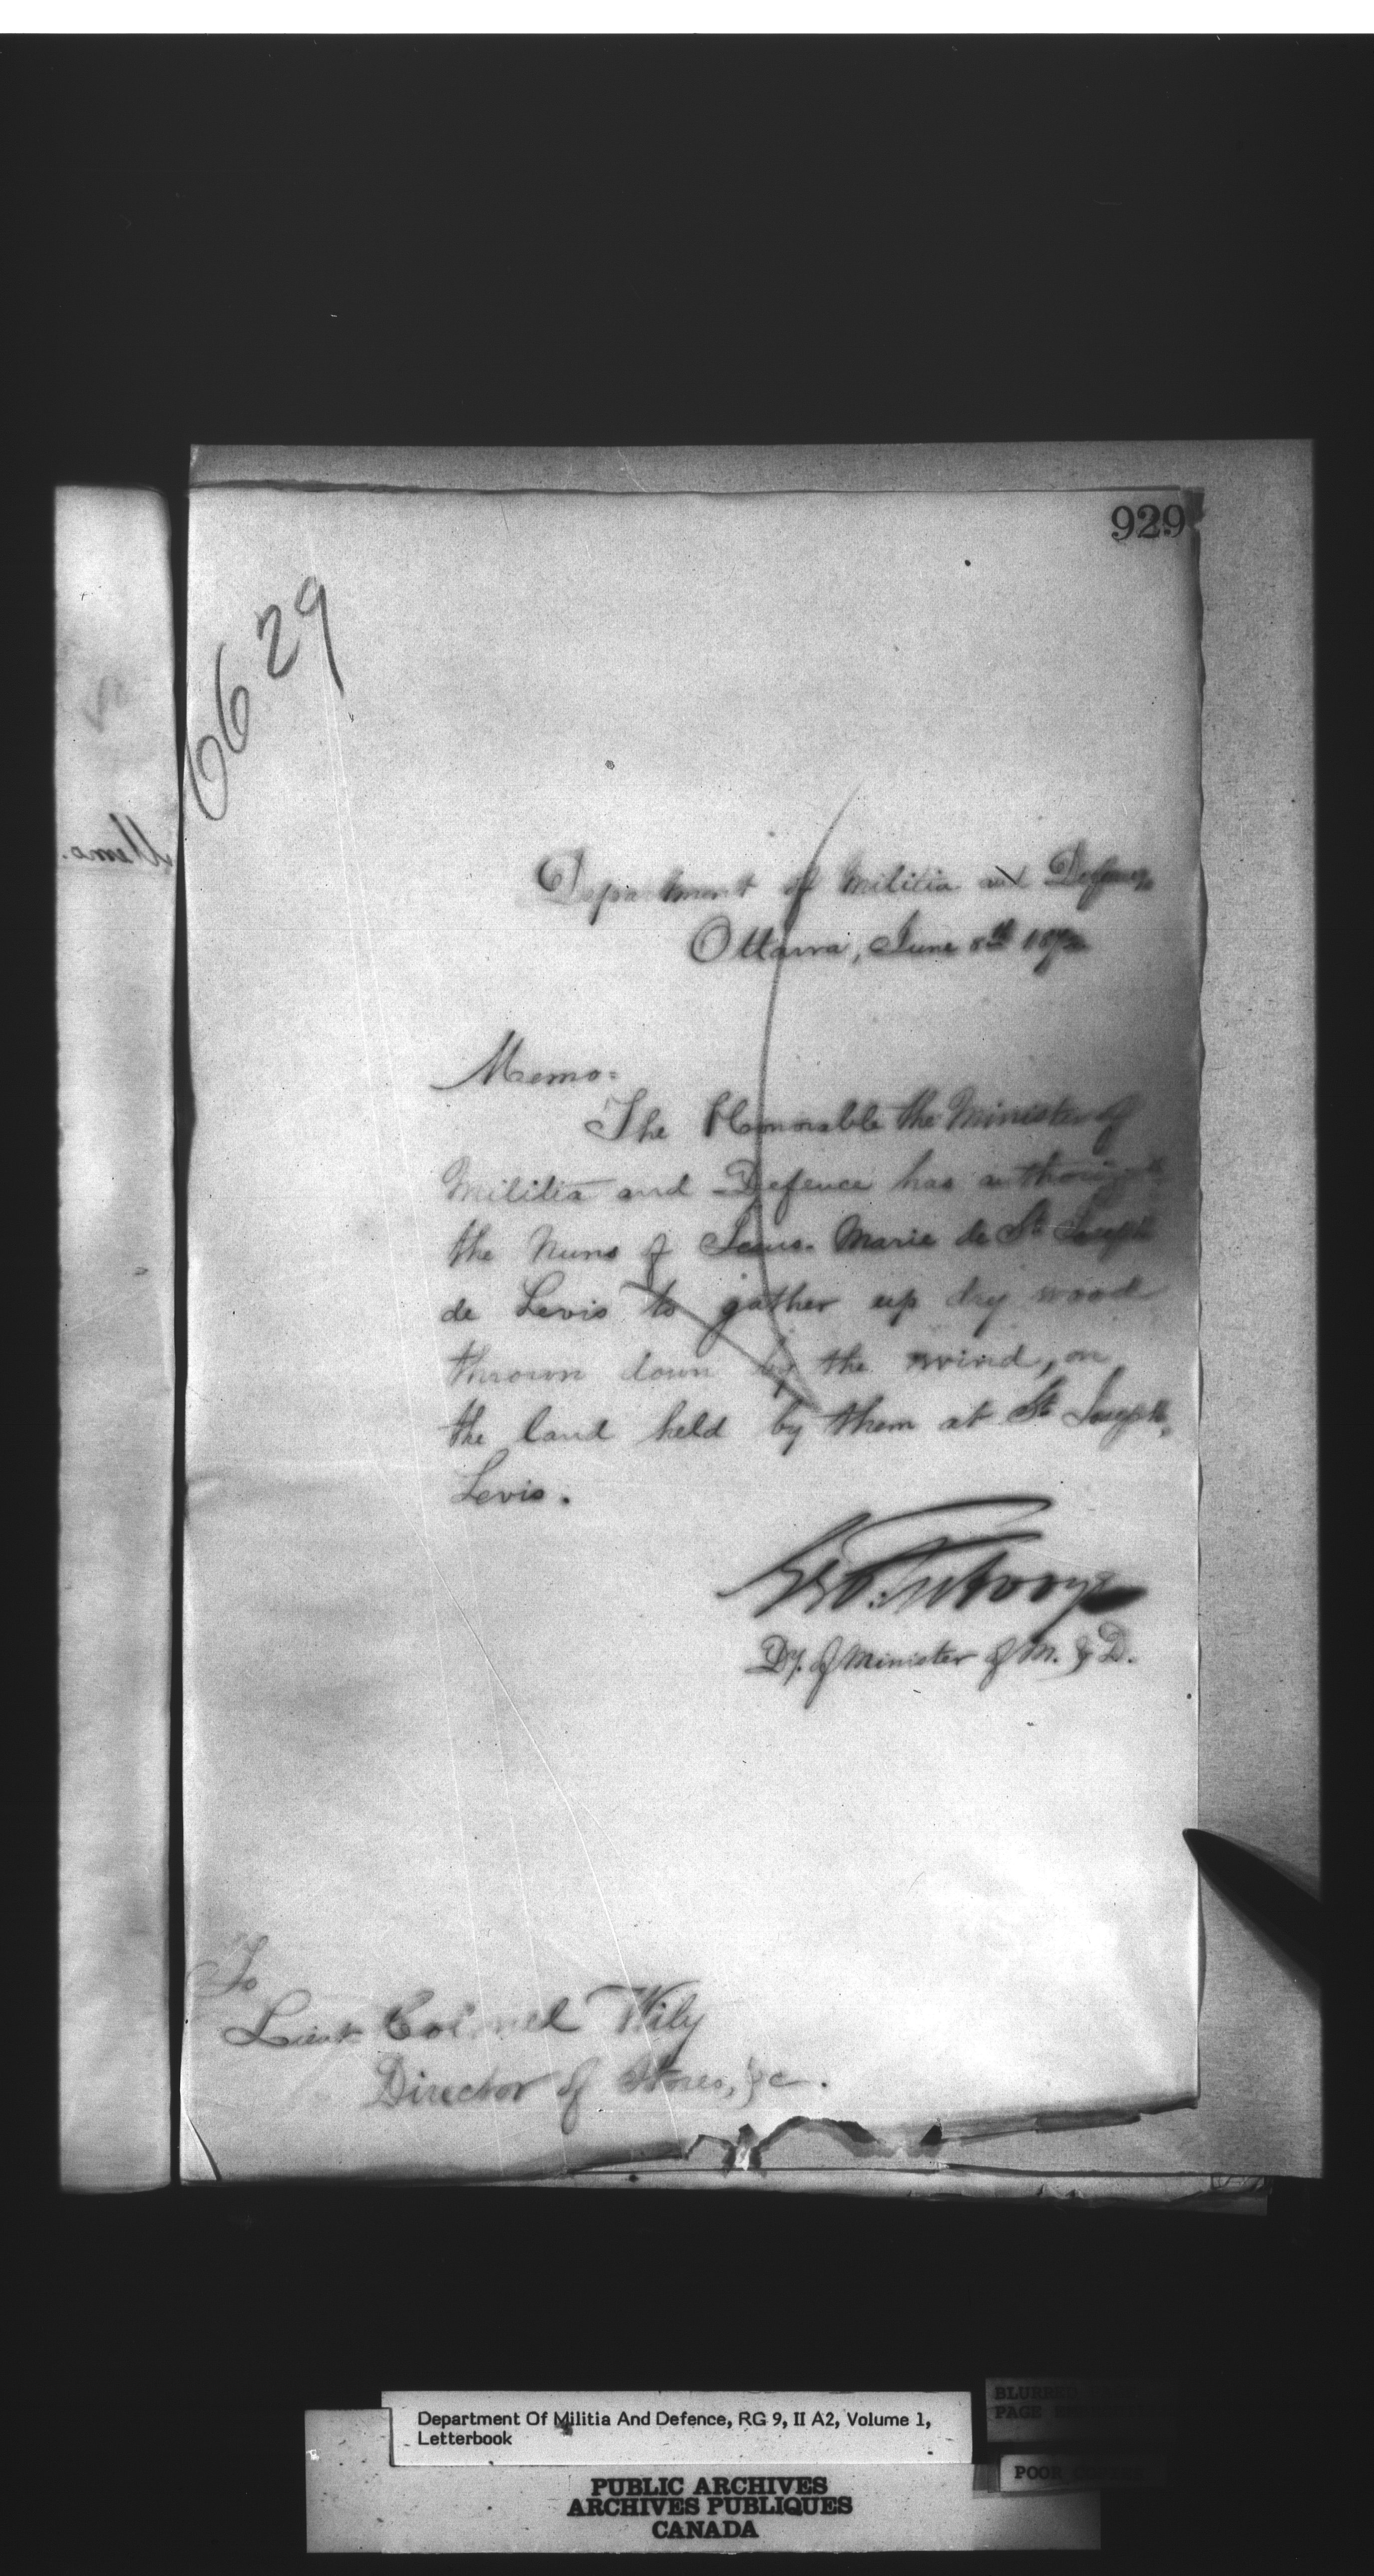 929
6629
Memo.
Department of Militia and Defence,
Ottawa, June 8th 1872
Memo:
The Honorable the Minister of
Militia and Defence has authorized
the Nuns of Jesus-Marie de St Joseph
de Levis to gather up dry wood
thrown down by the wind, on
the land held by them at St Joseph,
Levis.
Dy. of Minister of M. & D.
To
Lieut Colonel Wily
Director of Stores, &c.
Department Of Militia And Defence, RG 9, II A2, Volume 1,
Letterbook
BLURRED
PAGE
POOR
PUBLIC ARCHIVES
ARCHIVES PUBLIQUES
CANADA